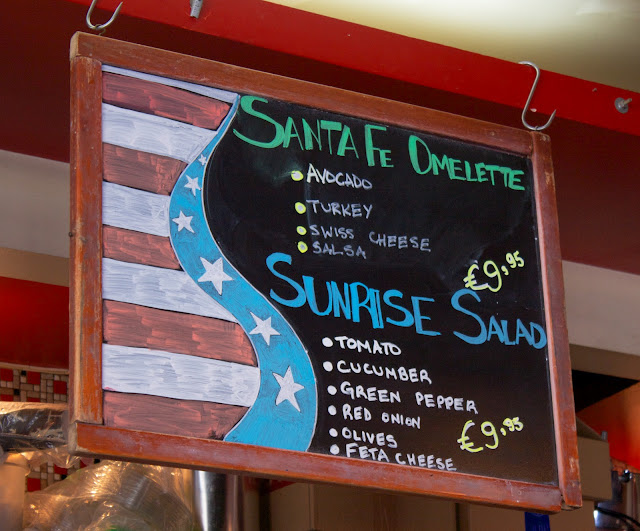 SANTA FE OMELETTE
AVOCADO
TURKEY
SWISS CHEESE
SALSA
€9.95
SUNRISE SALAD
TOMATO
CUCUMBER
GREEN PEPPER
RED ONION
OLIVES
FETA CHEESE
€9.95